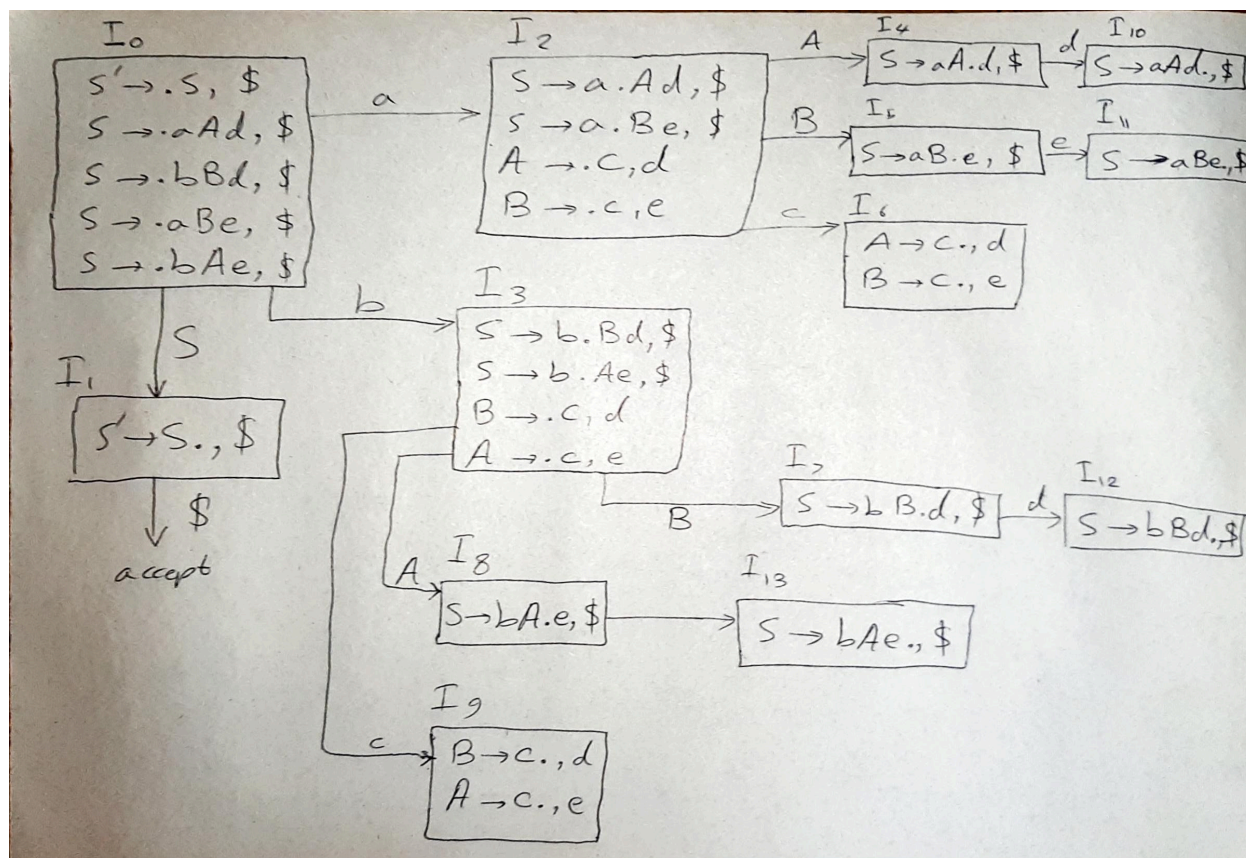 I0
S' → .S, $
S → .aAd, $
S → .bBd, $
S → .aBe, $
S → .bAe, $
a
I2
S → a.Ad, $
S → a.Be, $
A → .c, d
B → .c, e
A
I4
S → aA.d, $
d
I10
S → aAd., $
B
I5
S → aB.e, $
e
I11
S → aBe., $
c
I6
A → c., d
B → c., e
S
b
I3
S → b.Bd, $
S → b.Ae, $
B → .c, d
A → .c, e
I1
S' → S., $
$
accept
B
I7
S → bB.d, $
d
I12
S → bBd., $
A
I8
S → bA.e, $
I13
S → bAe., $
c
I9
B → c., d
A → c., e